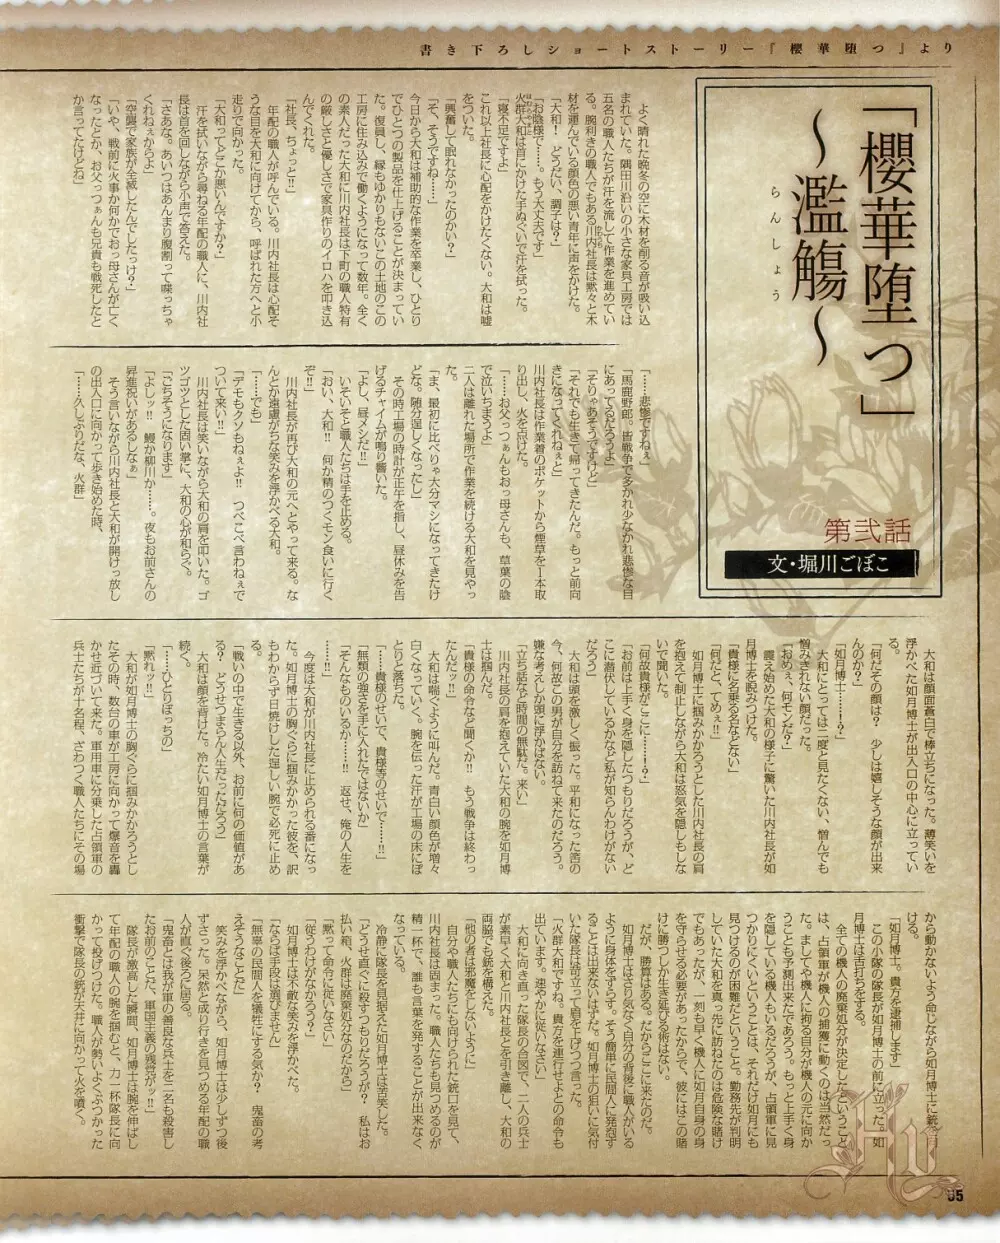 書き下ろしショートストーリー『櫻華堕つ』より
「櫻華堕つ」
～濫觴～
らんしょう
第弐話
文・堀川ごぼこ
よく晴れた晩冬の空に木材を削る音が吸い込
まれていた。隅田川沿いの小さな家具工房では
五名の職人たちが汗を流して作業を進めてい
る。腕利きの職人でもある川内社長は黙々と木
材を運んでいる顔色の悪い青年に声をかけた。
「大和！　どうだい、調子は？」
「お陰様で……。もう大丈夫です」
火群大和は首にかけた手ぬぐいで汗を拭った。
「寝不足ですよ」
これ以上社長に心配をかけたくない。大和は嘘
をついた。
「興奮して眠れなかったのかい？」
「そ、そうですね……」
今日から大和は補助的な作業を卒業し、ひとり
でひとつの製品を仕上げることが決まってい
た。復員し、縁もゆかりもないこの土地のこの
工房に住み込みで働くようになって数年。全く
の素人だった大和に川内社長は下町の職人特有
の厳しさと優しさで家具作りのイロハを叩き込
んでくれた。
「社長、ちょっと!!」
年配の職人が呼んでいる。川内社長は心配そ
うな目を大和に向けてから、呼ばれた方へと小
走りで向かった。
「大和ってどこか悪いんですか？」
汗を拭いながら尋ねる年配の職人に、川内社
長は首を回しながら小声で答えた。
「さあな。あいつはあんまり腹割って喋っちゃ
くれねぇからよ」
「空襲で家族が全滅したんでしたっけ？」
「いや、戦前に火事か何かでお っ母さんが亡く
なったとか、お父っつぁんも兄貴も戦死したと
か言ってたけどね」
「……悲惨ですねぇ」
「馬鹿野郎。皆戦争で多かれ少なかれ悲惨な目
にあってるだろうよ」
「そりゃあそうですけど」
「それでも生きて帰ってきたんだ。もっと前向
きになってくれねぇと」
川内社長は作業着のポケットから煙草を１本取
り出し、火を点けた。
「……お父っつぁんもおっ母さんも、草葉の陰
で泣いちまうよ」
二人は離れた場所で作業を続ける大和を見やっ
た。
「ま、最初に比べりゃ大分マシになってきたけ
どな。随分逞しくなったし」
その時工場の時計が正午を指し、昼休みを告
げるチャイムが鳴り響いた。
「よし、昼メシだ!!」
いそいそと職人たちは手を止める。
「おい、大和!!　何か精のつくモン食いに行く
ぞ!!」
川内社長が再び大和の元へとやって来る。な
んとか遠慮がちな笑みを浮かべる大和。
「……でも」
「デモもクソもねぇよ!!　つべこべ言わねぇで
ついて来い!!」
川内社長は笑いながら大和の肩を叩いた。ゴ
ツゴツとした固い掌に、大和の心が和らぐ。
「ごちそうになります」
「よしッ!!　鰻か柳川か……。夜もお前さんの
昇進祝いがあるしなぁ」
そう言いながら川内社長と大和が開けっ放し
の出入口に向かって歩き始めた時、
「……久しぶりだな、火群」
大和は顔面蒼白で棒立ちになった。薄笑いを
浮かべた如月博士が出入口の中心に立ってい
「何だその顔は？　少しは嬉しそうな顔が出来
んのか？」
「如月博士……!?」
大和にとっては二度と見たくない、憎んでも
憎みきれない顔だった。
「おめぇ、何モンだ？」
震え始めた大和の様子に驚いた川内社長が如
月博士を睨みつけた。
「貴様に名乗る名などない」
「何だと、てめぇ!!」
如月博士に掴みかかろうとした川内社長の肩
を抱えて制止しながら大和は怒気を隠しもしな
いで聞いた。
「何故貴様がここに……!?」
「お前は上手く身を隠したつもりだろうが、ど
こに潜伏しているかなど私が知らんわけがない
だろう」
大和は頭を激しく振った。平和になった筈の
今、何故この男が自分を訪ねて来たのだろう。
嫌な考えしか頭に浮かばない。
「立ち話など時間の無駄だ。来い」
川内社長の肩を抱えていた大和の腕を如月博
士は掴んだ。
「貴様の命令など聞くか!!　もう戦争は終わっ
たんだッ!!」
大和は喘ぐように叫んだ。青白い顔色が増々
白くなっていく。腕を伝った汗が工場の床にぽ
とりと落ちた。
「貴様のせいで、貴様等のせいで……!!」
「無類の強さを手に入れたではないか」
「そんなものいるか……!!　返せ、俺の人生を
……!!」
今度は大和が川内社長に止められる番になっ
た。如月博士の胸ぐらに掴みかかった彼を、訳
もわからず日焼けした逞しい腕で必死に止め
る。
「戦いの中で生きる以外、お前に何の価値があ
る？　どうせつまらん人生だっただろう」
大和は顔を背けた。冷たい如月博士の言葉が
続く。
「……ひとりぼっちの」
「黙れッ!!」
大和が如月博士の胸ぐらに掴みかかろうとし
たその時、数台の車が工房に向かって爆音を轟
かせ近づいて来た。軍用車に分乗した占領軍の
兵士たちが十名程、ざわつく職人たちにその場
から動かないよう命じながら如月博士に銃を向
ける。
「如月博士。貴方を逮捕します」
この小隊の隊長が如月博士の前に立った。如
月博士は舌打ちをする。
全ての機人の廃棄処分が決定したということ
は、占領軍が機人の捕獲に動くのは当然だっ
た。ましてや機人に拘る自分が機人の元に向か
うことも予測出来たであろう。もっと上手く身
を隠している機人もいるだろうが、占領軍に見
つかりにくいということは、それだけ如月にも
見つけるのが困難だということ。勤務先が判明
していた大和を真っ先に訪ねたのは危険な賭け
でもあったが、一刻も早く機人に如月自身の身
を守らせる必要があったからで、彼にはこの賭
けに勝つしか生き延びる術はない。
だが、勝算はある。だからここに来たのだ。
如月博士はさり気なく自分の背後に職人がいる
ように身体をずらす。そう簡単に民間人に発砲す
ることは出来ないはずだ。如月博士の狙いに気付
いた隊長は苛立って眉を上げつつ言った。
「火群大和ですね。貴方を連行せよとの命令も
出ています。速やかに従いなさい」
大和に向き直った隊長の合図で、二人の兵士
が素早く大和と川内社長とを引き離し、大和の
両脇でも銃を構えた。
「他の者は邪魔をしないように」
自分や職人たちにも向けられた銃口を見て、
川内社長は固まった。職人たちも見つめるのが
精一杯で、誰も言葉を発することが出来なく
なっている。
冷静に隊長を見据えた如月博士は苦笑した。
「どうせ直ぐに殺すつもりだろうが？　私はお
払い箱、火群は廃棄処分なのだから」
「黙って命令に従いなさい」
「従うわけがなかろう？」
如月博士は不敵な笑みを浮かべた。
「ならば手段は選びません」
「無辜の民間人を犠牲にする気か？　鬼畜の考
えそうなことだ」
笑みを浮かべながら、如月博士は少しずつ後
ずさった。呆然と成り行きを見つめる年配の職
人が直ぐ後ろに居る。
「鬼畜とは我が軍の善良な兵士を二名も殺害し
たお前のことだ、軍国主義の残党がッ!!」
隊長が激高した瞬間、如月博士は腕を伸ばし
て年配の職人の腕を掴むと、力一杯隊長に向
かって投げつけた。職人が勢いよくぶつかった
衝撃で隊長の銃が天井に向かって火を噴く。
95